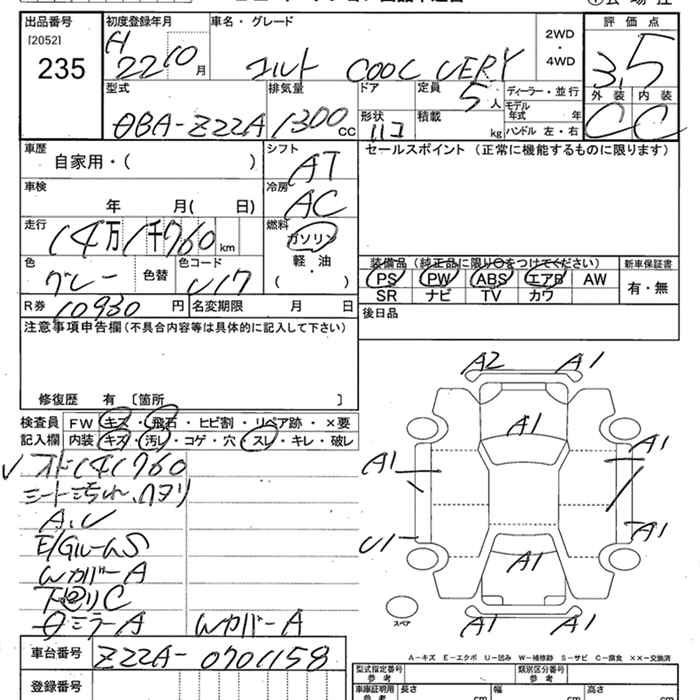 出品番号
[2052]
235
初度登録年月
H 22 10 月
車名・グレード
コルト COOL VERY
2WD
・
4WD
評価点
3.5
外装 内装
C C
型式
DBA-Z22A
排気量
1300 cc
ドア
形状
ハコ
定員
5 人
積載
kg
ディーラー・並行
モデル年式 年
ハンドル 左・右
車歴
自家用・( )
シフト
AT
セールスポイント (正常に機能するものに限ります)
車検
年 月( 日)
冷房
AC
走行
14万1千760 km
燃料
ガソリン
・
軽・油
( )
色
グレー
色替
色コード
U17
装備品 (純正品に限り○をつけてください)
PS PW ABS エアB AW
SR ナビ TV カワ
新車保証書
有・無
R券 10930 円
名変期限 月 日
後日品
注意事項申告欄 (不具合内容等は具体的に記入して下さい)
修復歴 有 [箇所 ]
検査員記入欄
FW キズ・飛石・ヒビ割・リペア跡・×要
内装 キズ・汚レ・コゲ・穴・スレ・キレ・破レ
オド141760
シート汚れ、ヘタリ
A.U
E/GルームS
Wカバー A
下回りC
ミラーA
WカバーA
A2 A1
A1
A1 A1
U1 A1
A1
A1 A1
スペア
A－キズ E－エクボ U－凹み W－補修跡 S－サビ C－腐食 ××－交換済
車台番号
Z22A-0701158
登録番号
型式指定番号
類別区分番号
車庫証明用参考
長さ cm
幅 cm
高さ cm